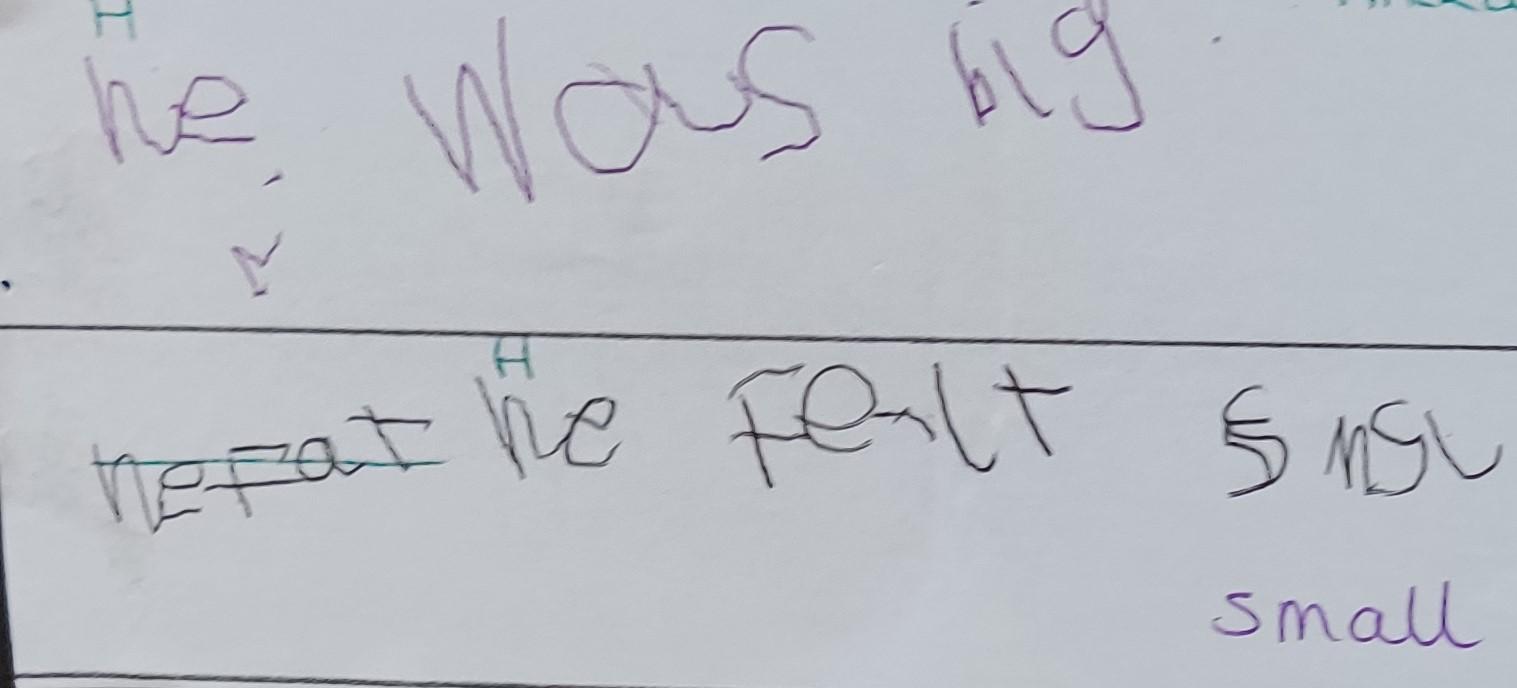 H
he Was big.
H
nefat he Felt smsl
small